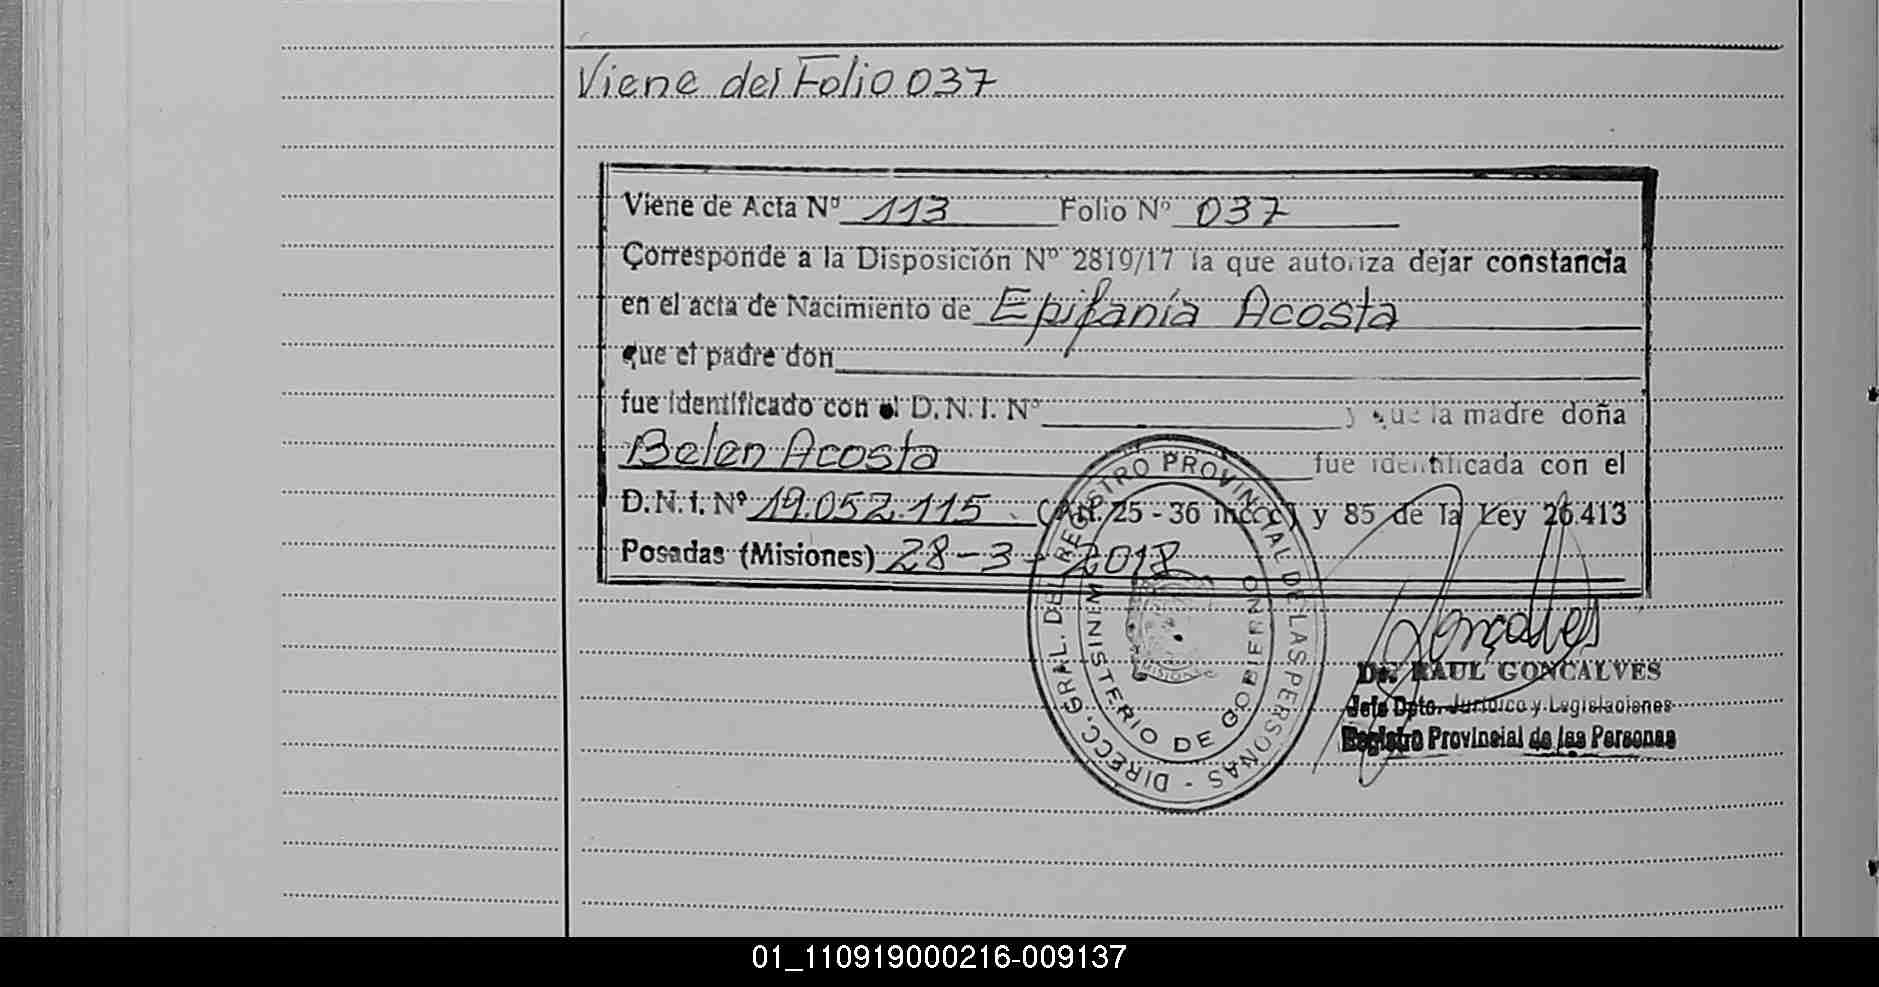 Viene del Folio 037
Viene de Acta Nº 113 Folio Nº 037
Corresponde a la Disposición Nº 2819/17 la que autoriza dejar constancia
en el acta de Nacimiento de Epifanía Acosta
que el padre don
fue identificado con el D.N.I. Nº y que la madre doña
Belen Acosta fue identificada con el
D.N.I. Nº 19.052.115 (Art. 25 - 36 inc. c) y 85 de la Ley 26.413
Posadas (Misiones) 28-3-2018
DIRECC. GRAL. DEL REGISTRO PROVINCIAL DE LAS PERSONAS -
MINISTERIO DE GOBIERNO
MISIONES
Goncalves
Dr. RAUL GONCALVES
Jefe Dpto. Jurídico y Legislaciones
Registro Provincial de las Personas
01_110919000216-009137